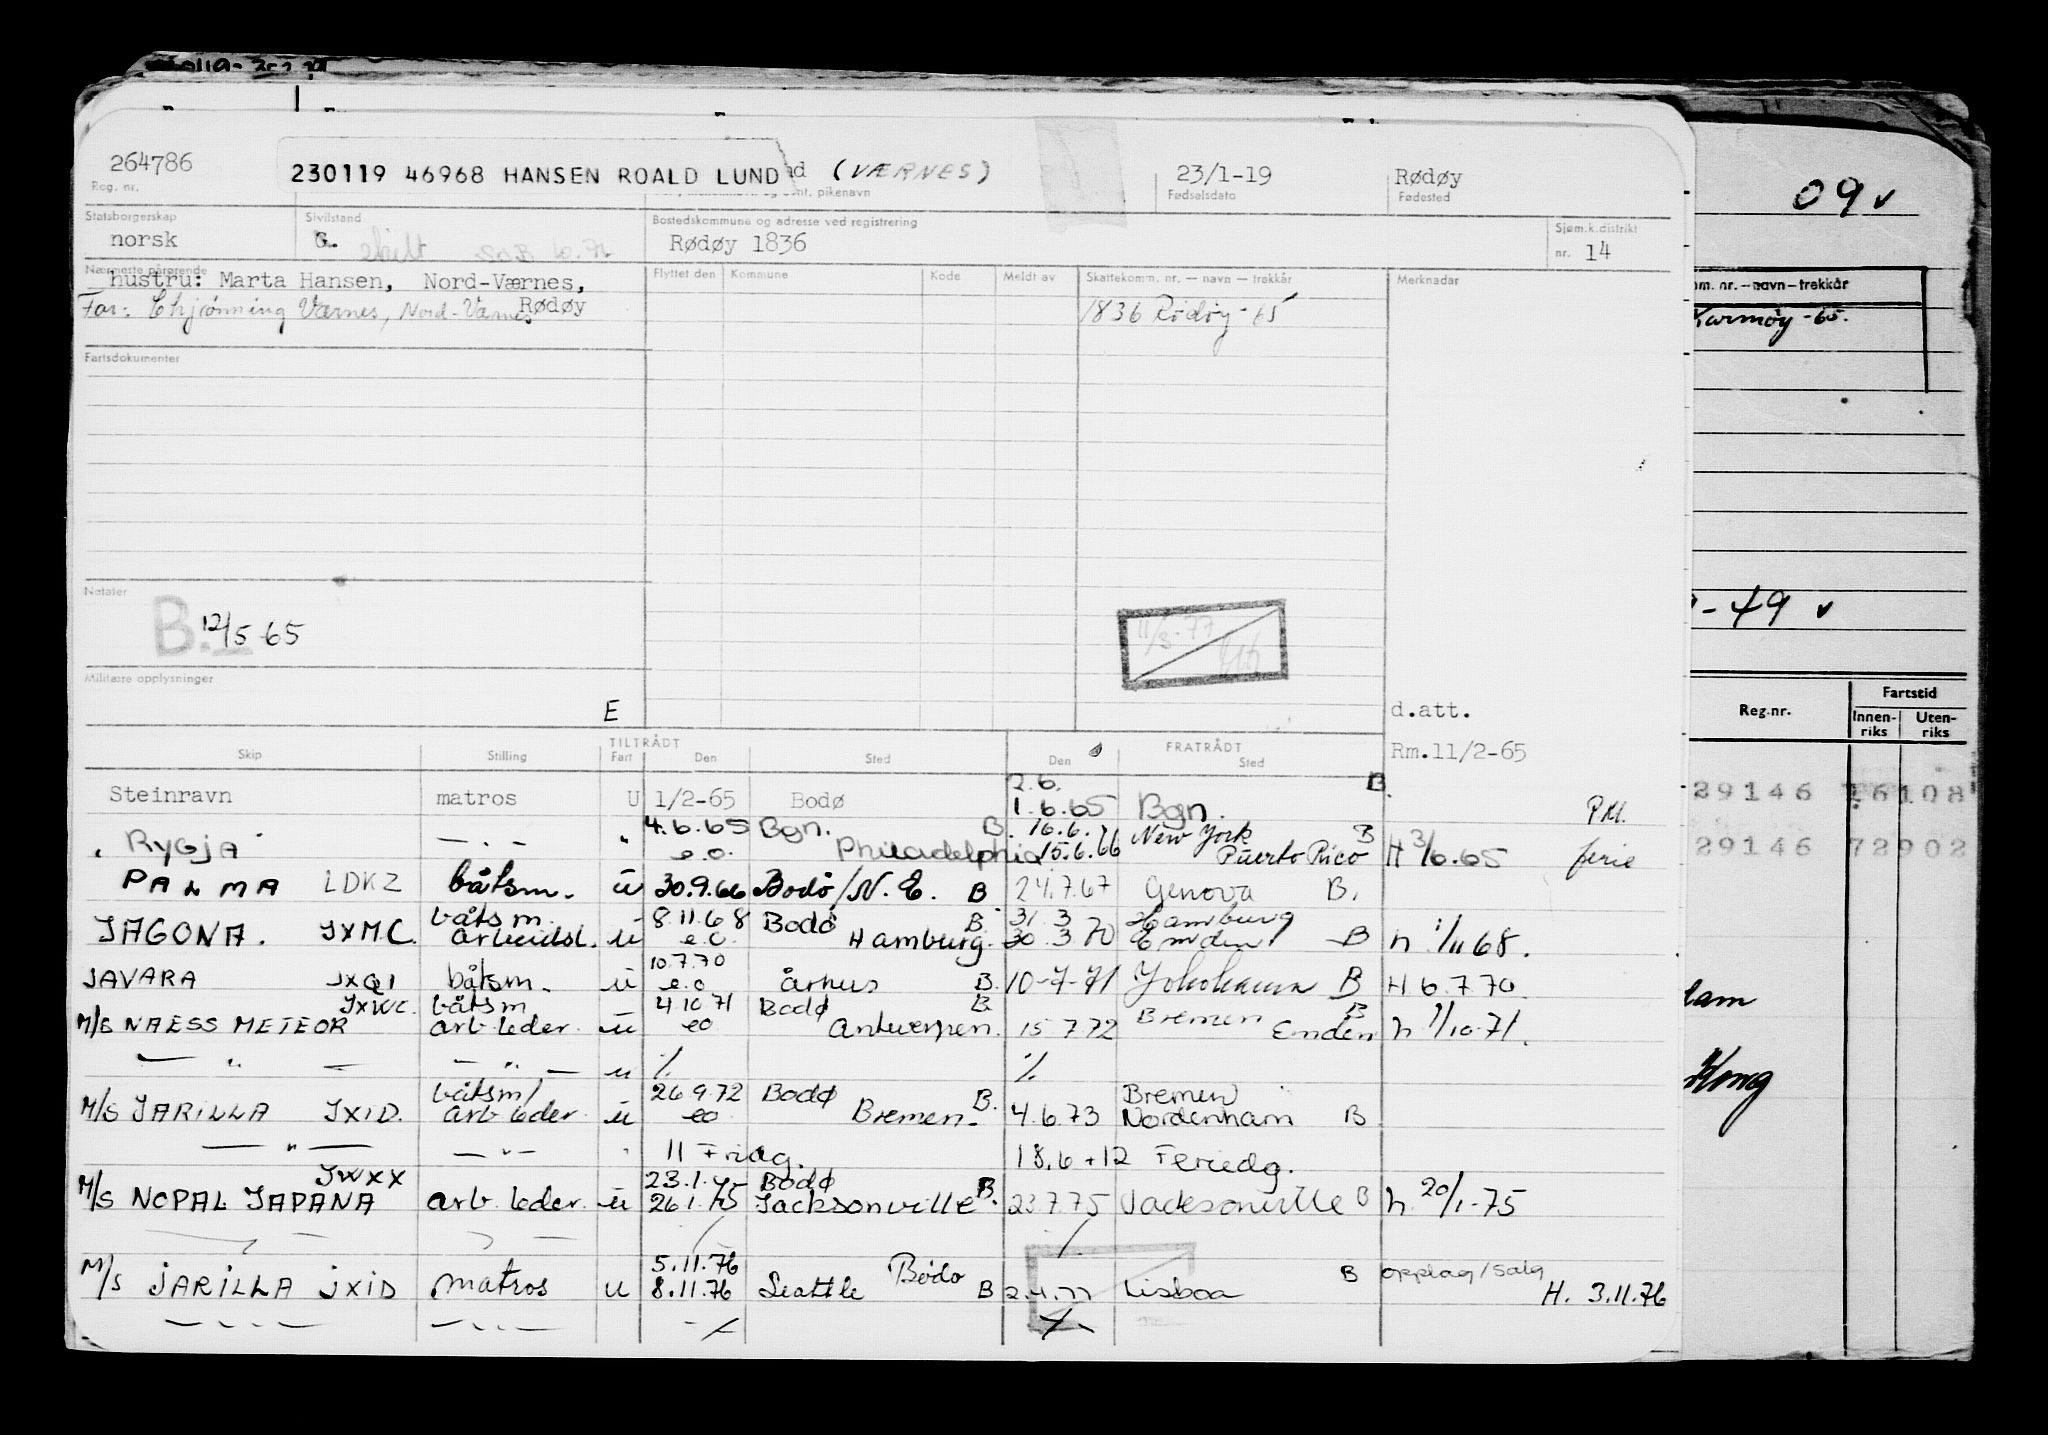 264786
Reg. nr.
230119 46968 HANSEN ROALD LUND (VÆRNES)
pikenavn
23/1-19
Fødselsdato
Rødøy
Fødested
Statsborgerskap
norsk
Sivilstand
G. skilt
Bostedskommune og adresse ved registrering
Rødøy 1836
Sjøm.k.distrikt
nr. 14
Nærmeste pårørende
hustru: Marta Hansen, Nord-Værnes,
Rødøy
Far: Chjønning Værnes, Nord-Værnes
Flyttet den Kommune Kode Meldt av Skattekomm. nr. — navn — trekkår Merknader
1836 Rødøy-65
Fartsdokumenter
Notater
B. 12/5-65
11/3-77
Militære opplysninger
E
d.att.
TILTRÅDT FRATRÅDT
Skip Stilling Fart Den Sted Den Sted
Rm.11/2-65
2.6. B.
Steinravn matros U 1/2-65 Bodø 1.6.65 Bgn. P.M.
4.6.65 Bgn. B. 16.6. New York B
" RYGJA — . — " e.o. Philadelphia 15.6.66 Puerto Rico H 3/6.65 ferie
PALMA LDKZ båtsm. u 30.9.66 Bodø/N.E. B 24.7.67 Genova B.
båtsm. 8.11.68 Bodø B. 31.3 Hamburg
JAGONA. JXMC. arbeidsl. u e.o. Hamburg. 30.3.70 Emden B h 1/11 68.
10.7.70
JAVARA JXQI båtsm. u e.o århus B. 10-7-71 Yokohama B H 6.7.70
JXWC. båtsm 4.10.71 Bodø B. Bremen B
M/S NAESS METEOR arb.leder. u eo Antwerpen. 15.7.72 Emden h 1/10-71.
— " — — " — u % %
båtsm/ 26.9.72 Bodø B. Bremen
M/S JARILLA JXID. arb leder. u eo Bremen. 4.6.73 Nordenham B
— " — — " — 11 Fridg. 18.6 + 12 Feriedg.
JWXX 23.1.75 Bodø
M/S NOPAL JAPANA arb. leder. u 26.1.75 Jacksonville B. 23.7.75 Jacksonville B h 20/1-75
5.11.76 Bodø
M/S JARILLA JXID matros u 8.11.76 Seattle B 2.4.77 Lisboa B opplag/salg
H. 3.11.76
— . . — — . . —
09 v
mm. nr. — navn — trekkår
Karmøy -65.
- 49 v
Reg.nr. Fartstid
Innenriks Utenriks
29146 108
29146 72902
Kong